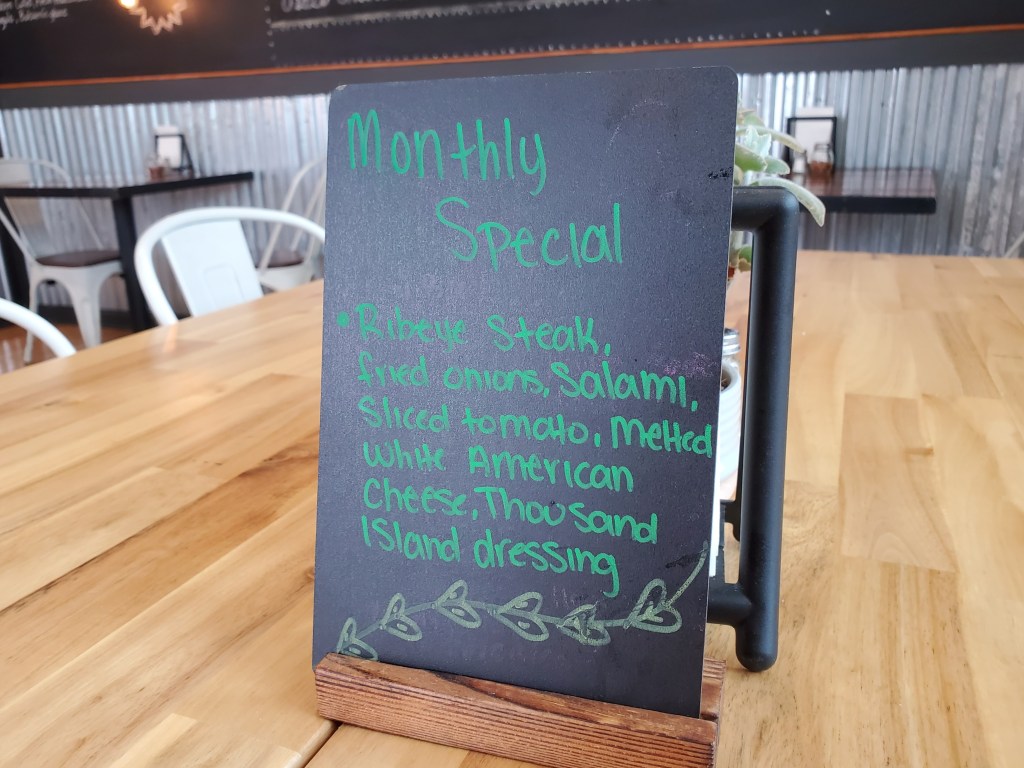 Monthly
Special
• Ribeye Steak,
fried onions, Salami,
Sliced tomato, Melted
White American
Cheese, Thousand
Island dressing